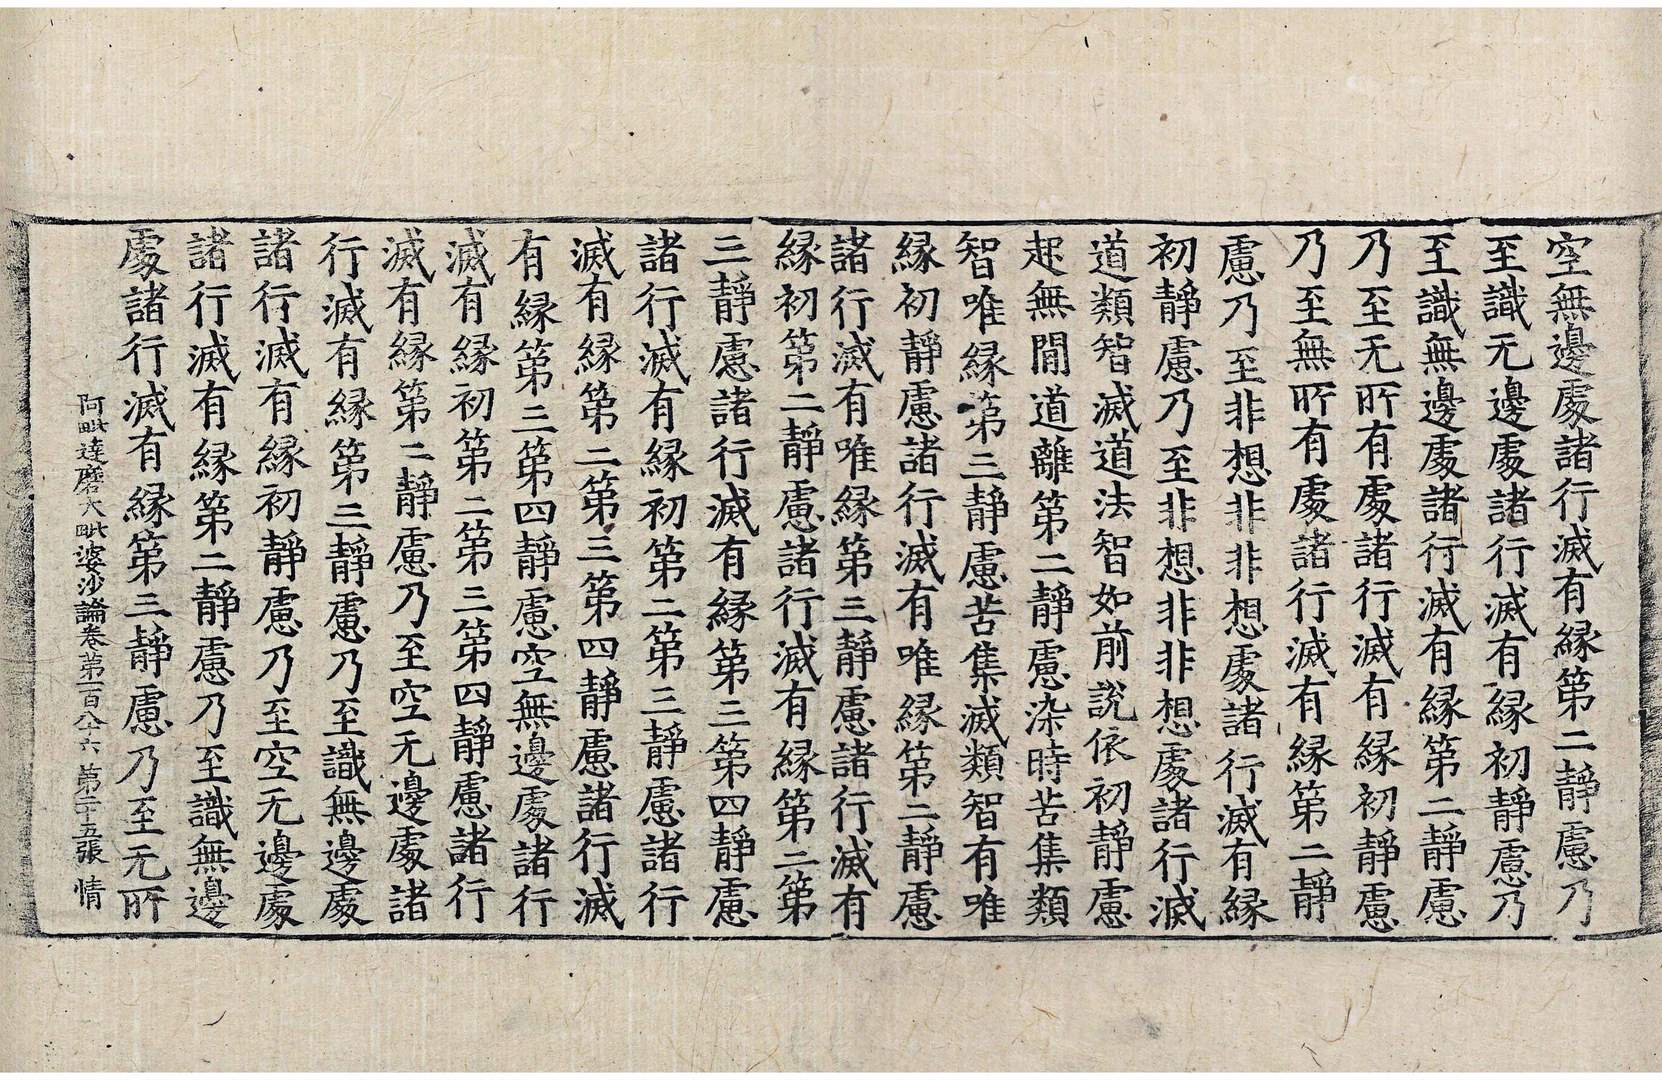 空無邊處諸行滅有縁第二靜慮乃
至識无邊處諸行滅有縁初靜慮乃
至識無邊處諸行滅有縁第二靜慮
乃至无所有處諸行滅有縁初靜慮
乃至無所有處諸行滅有縁第二靜
慮乃至非想非非想處諸行滅有縁
初靜慮乃至非想非非想處諸行滅
道類智滅道法智如前說依初靜慮
起無閒道離第二靜慮染時苦集類
智唯縁第三靜慮苦集滅類智有唯
縁初靜慮諸行滅有唯縁第二靜慮
諸行滅有唯縁第三靜慮諸行滅有
縁初第二靜慮諸行滅有縁第二第
三靜慮諸行滅有縁第三第四靜慮
諸行滅有縁初第二第三靜慮諸行
滅有縁第二第三第四靜慮諸行滅
有縁第三第四靜慮空無邊處諸行
滅有縁初第二第三第四靜慮諸行
滅有縁第二靜慮乃至空无邊處諸
行滅有縁第三靜慮乃至識無邊處
諸行滅有縁初靜慮乃至空无邊處
諸行滅有縁第二靜慮乃至識無邊
處諸行滅有縁第三靜慮乃至无所
阿毗達磨大毗婆沙論卷第一百八十六 第二十五張 情